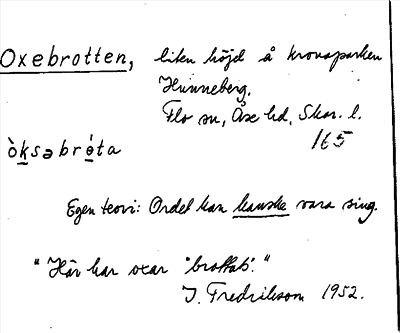 Oxebrotten, liten höjd å kronoparken
Hunneberg.
Flo sn, Åse hd, Skar. l.
165
ò̀ksəbré̱ta
Egen teori: Ordet kan kanske vara sing.
"Här har oxar 'brottats'."
J. Fredriksson 1952.